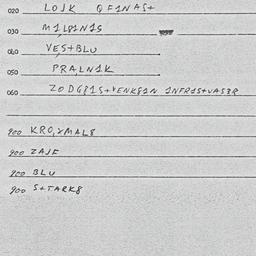 020 LOJK QF1NAS+
030 M1L81N1S
040 VES+BLU
050 PRALN1K
060 ZODG81S+VENKS1N 1NFR1S+VAS3R
900 KRO,XMAL8
900 ZAJF
900 BLU
900 S+TARK8